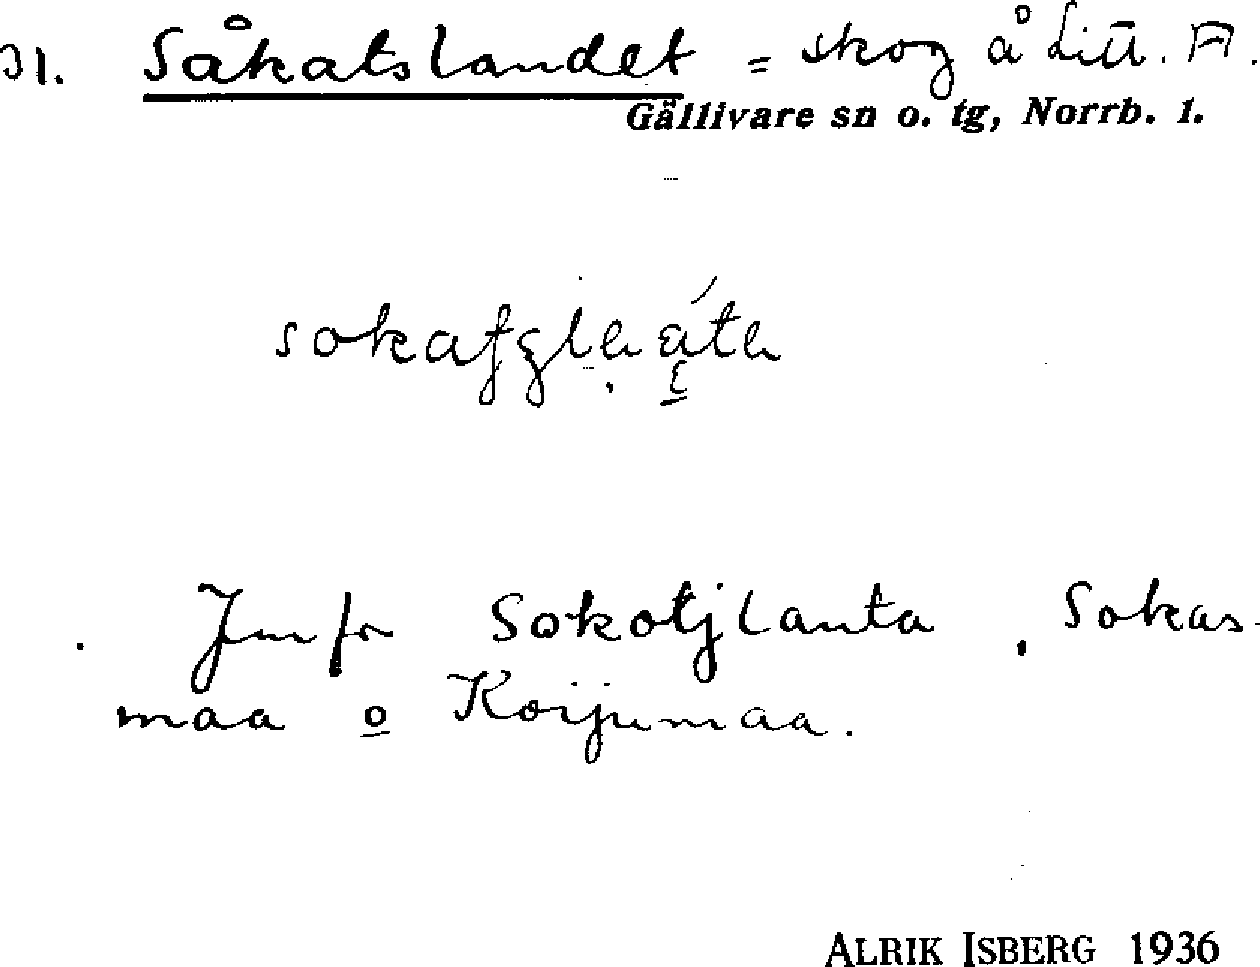 31. Såkatslandet = skog å Litt. A.
Gällivare sn o. tg, Norrb. 1.
Jmfr Sokotjlanta, Sokas-
maa o Koijumaa.
ALRIK ISBERG 1936